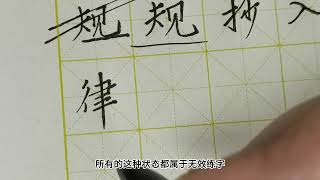 规 规 抄 入
律
所有的这种状态都属于无效练字